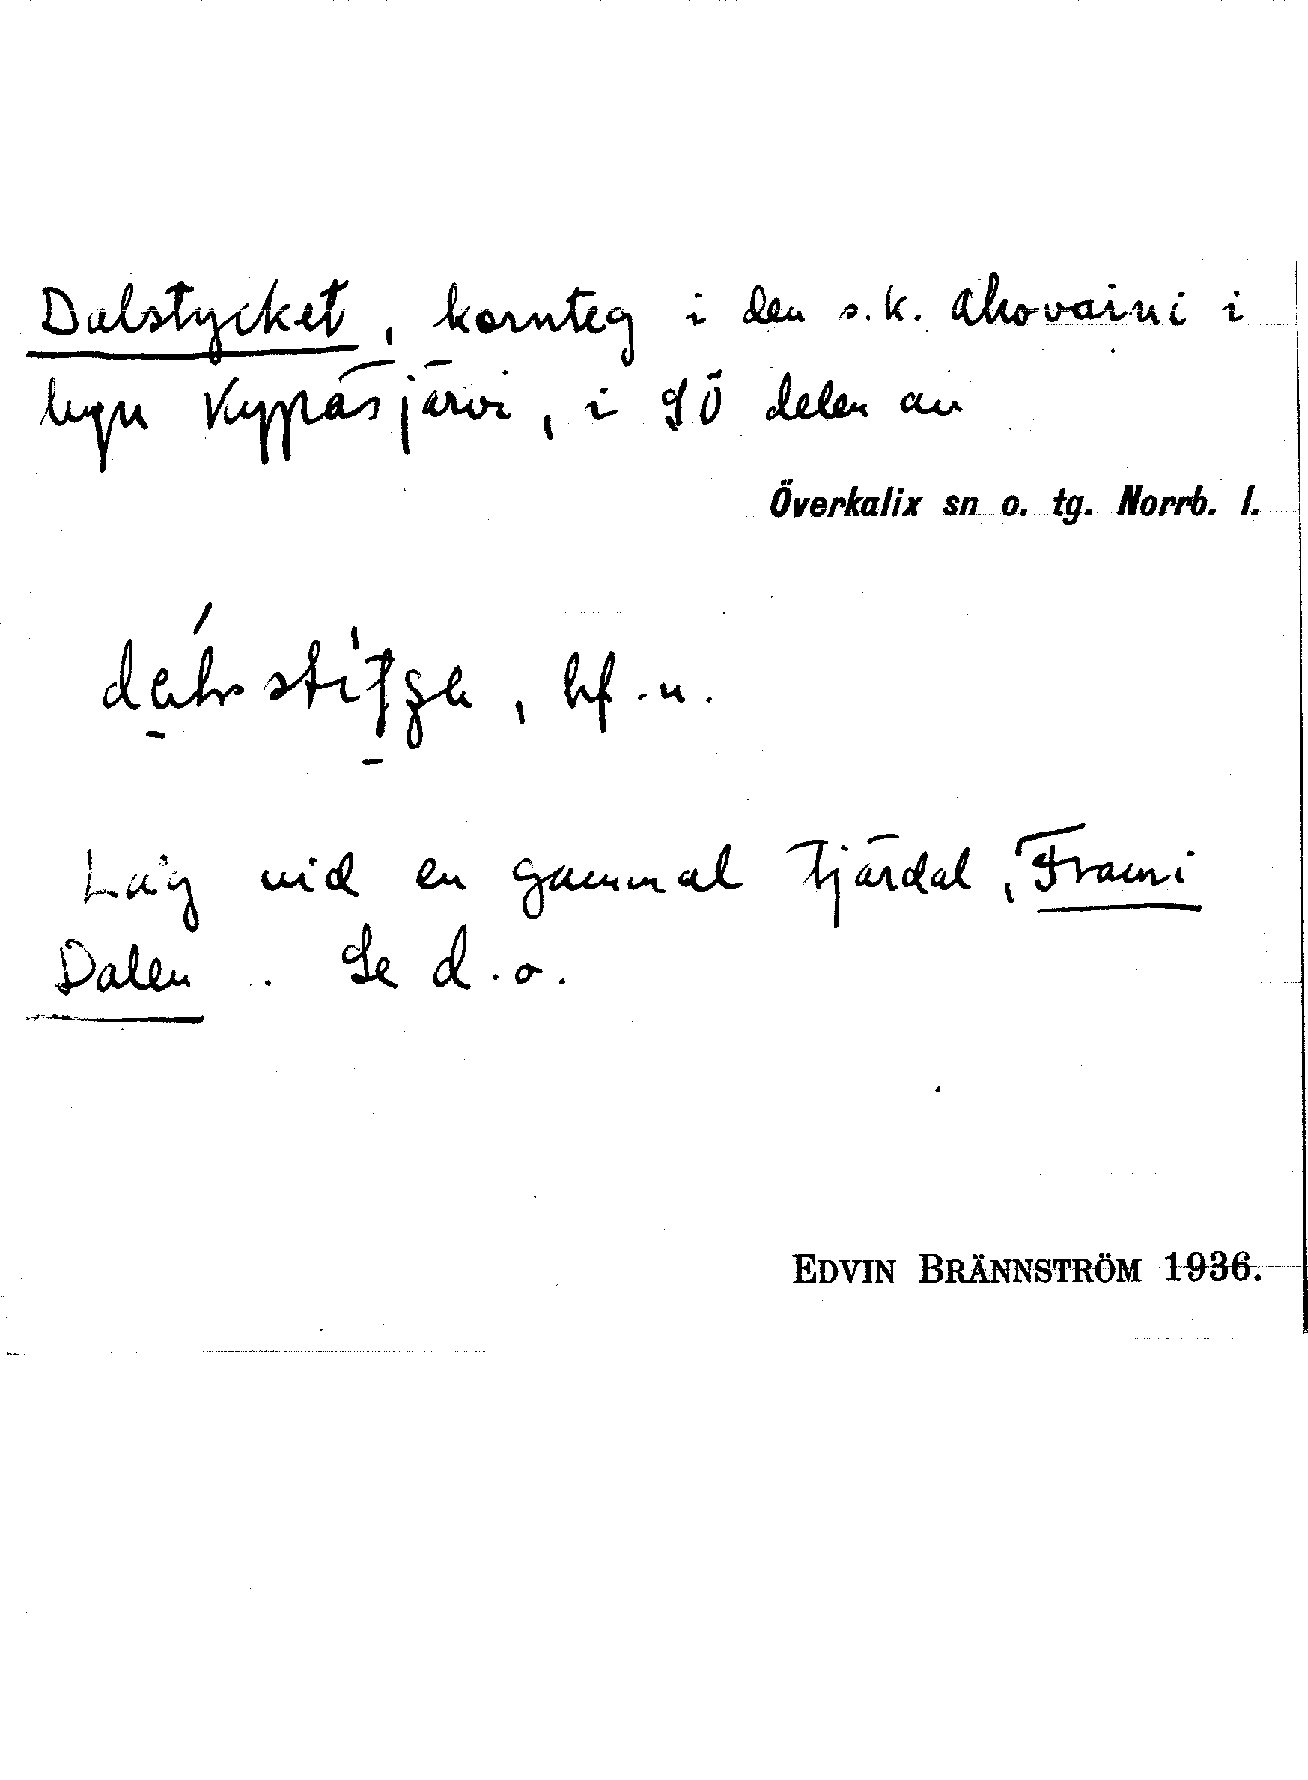 Dalstycket, kornteg i den s.k. Ahovaini i
byn Kyppäsjärvi, i SÖ delen av
Överkalix sn o. tg. Norrb. l.
, bf. n.
Låg vid en gammal tjärdal, Frami
Dalen. Se d.o.
EDVIN BRÄNNSTRÖM 1936.